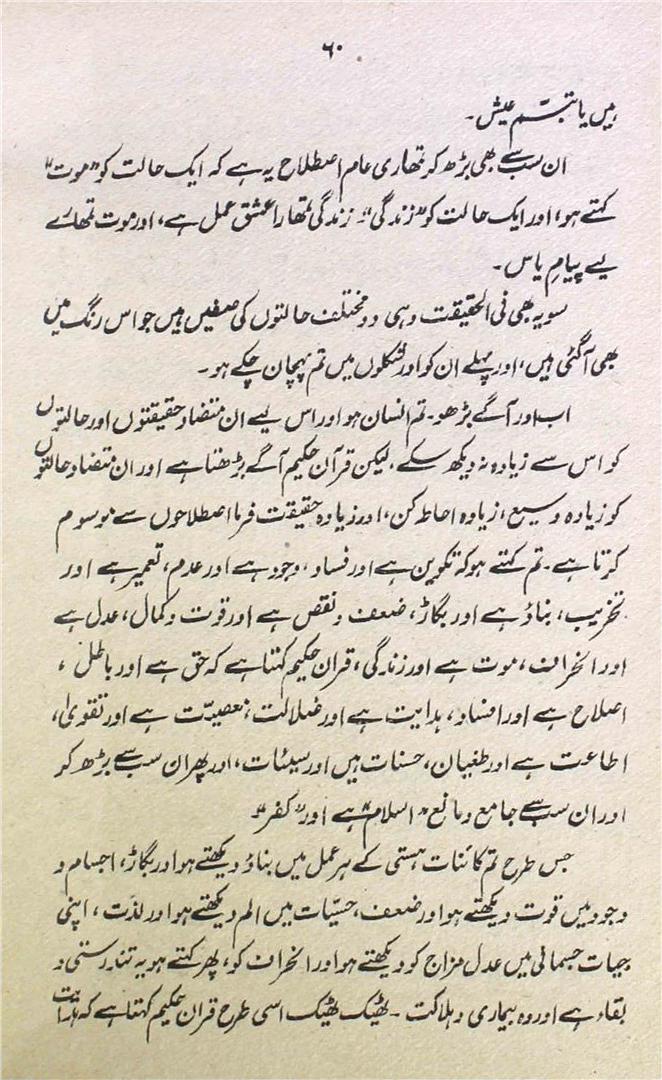 ۶۰
ہیں یا تبسّم عیش۔
ان سب سے بھی بڑھ کر تمھاری عام اصطلاح یہ ہے کہ ایک حالت کو "موت"
کہتے ہو، اور ایک حالت کو "زندگی"۔ زندگی تمھارا عشق عمل ہے، اور موت تمھارے
لیے پیامِ یاس۔
سو یہ بھی فی الحقیقت وہی دو مختلف حالتوں کی صفیں ہیں جو اس رنگ میں
بھی آگئی ہیں، اور پہلے ان کو اور شکلوں میں تم پہچان چکے ہو۔
اب اور آگے بڑھو۔ تم انسان ہو اور اس لیے ان متضاد حقیقتوں اور حالتوں
کو اس سے زیادہ نہ دیکھ سکے، لیکن قرآن حکیم آگے بڑھتا ہے اور ان متضاد حالتوں
کو زیادہ وسیع، زیادہ احاطہ کن، اور زیادہ حقیقت فرما اصطلاحوں سے موسوم
کرتا ہے۔ تم کہتے ہو کہ تکوین ہے اور فساد، وجود ہے اور عدم، تعمیر ہے اور
تخریب، بناؤ ہے اور بگاڑ، ضعف و نقص ہے اور قوت و کمال، عدل ہے
اور انحراف، موت ہے اور زندگی، قرآن حکیم کہتا ہے کہ حق ہے اور باطل،
اصلاح ہے اور افساد، ہدایت ہے اور ضلالت، معصیّت ہے اور تقویٰ،
اطاعت ہے اور طغیان، حسنات ہیں اور سیئات، اور پھر ان سب سے بڑھ کر
اور ان سب سے جامع و مانع "اسلام" ہے اور "کفر"۔
جس طرح تم کائنات ہستی کے ہر عمل میں بناؤ دیکھتے ہو اور بگاڑ، اجسام و
وجود میں قوت دیکھتے ہو اور ضعف، حسیّات میں الم دیکھتے ہو اور لذّت، اپنی
حیات جسمانی میں عدل مزاج کو دیکھتے ہو اور انحراف کو، پھر کہتے ہو یہ تندرستی و
بقاء ہے اور وہ بیماری و ہلاکت۔ ٹھیک ٹھیک اسی طرح قرآن حکیم کہتا ہے کہ ہدایت